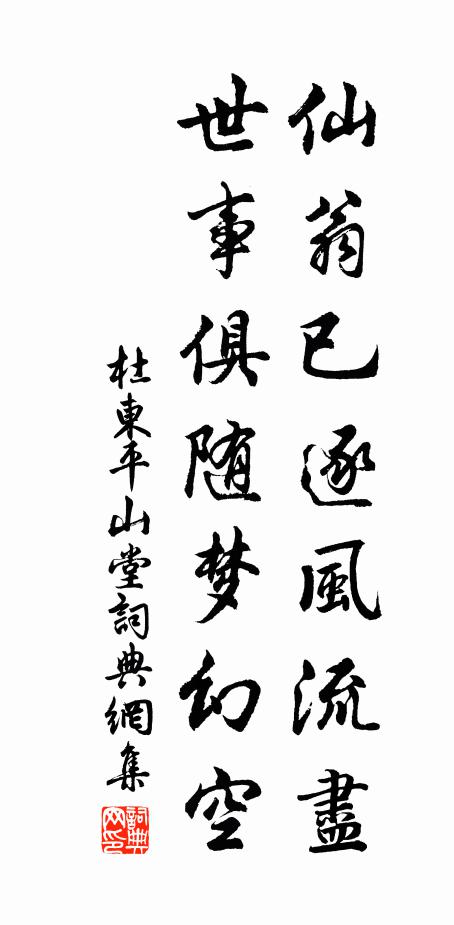 仙翁已逐風流盡
世事俱随梦幻空
杜東平山堂詞典網集
詞典網印